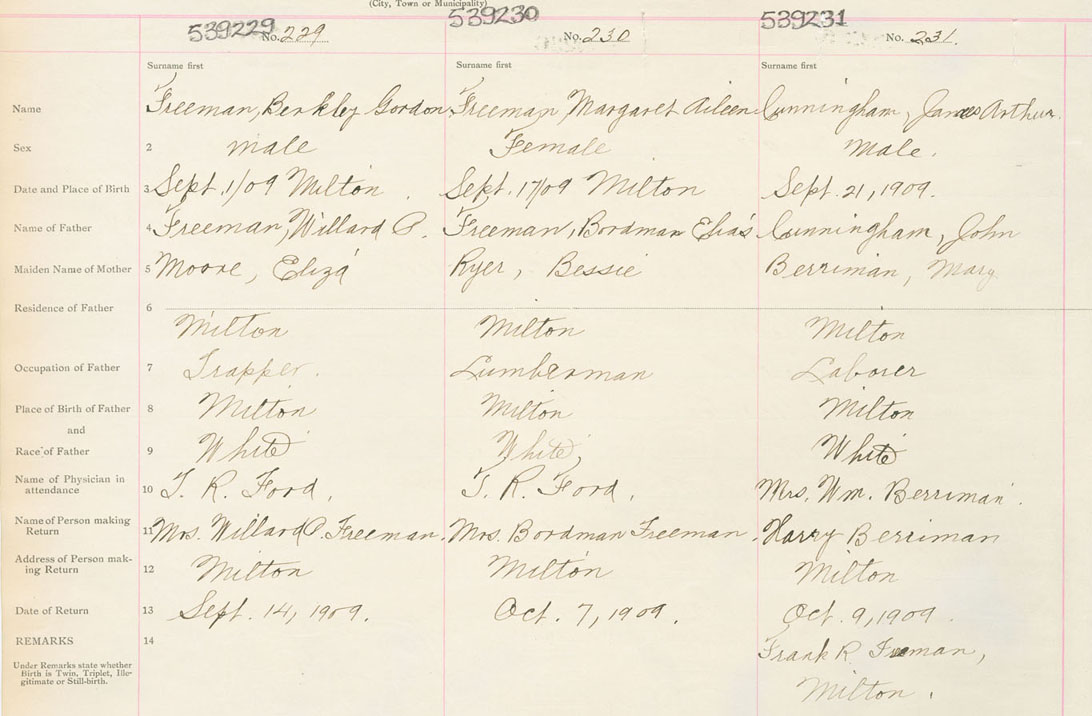 (City, Town or Municipality)
539229 No. 229 539230 No. 230 539231 No. 231.
Surname first Surname first Surname first
Name Freeman, Berkley Gordon Freeman Margaret Aileen Cunningham, James Arthur.
Sex 2 male Female Male.
Date and Place of Birth 3 Sept. 1/09 Milton Sept. 17/09 Milton Sept. 21, 1909.
Name of Father 4 Freeman, Willard P. Freeman, Bordman Elias Cunningham, John
Maiden Name of Mother 5 Moore, Eliza Ryer, Bessie Berriman, Mary
Residence of Father 6
Milton Milton Milton
Occupation of Father 7 Trapper. Lumberman Laborer
Place of Birth of Father 8 Milton Milton Milton
and
Race of Father 9 White White White
Name of Physician in
attendance 10 T. R. Ford, T. R. Ford, Mrs. Wm. Berriman.
Name of Person making
Return 11 Mrs. Willard P. Freeman. Mrs. Bordman Freeman. Harry Berriman
Address of Person mak-
ing Return 12 Milton Milton Milton
Date of Return 13 Sept. 14, 1909. Oct. 7, 1909. Oct. 9, 1909.
REMARKS 14 Frank R. Freeman,
Under Remarks state whether
Birth is Twin, Triplet, Ille-
gitimate or Still-birth.
Milton.